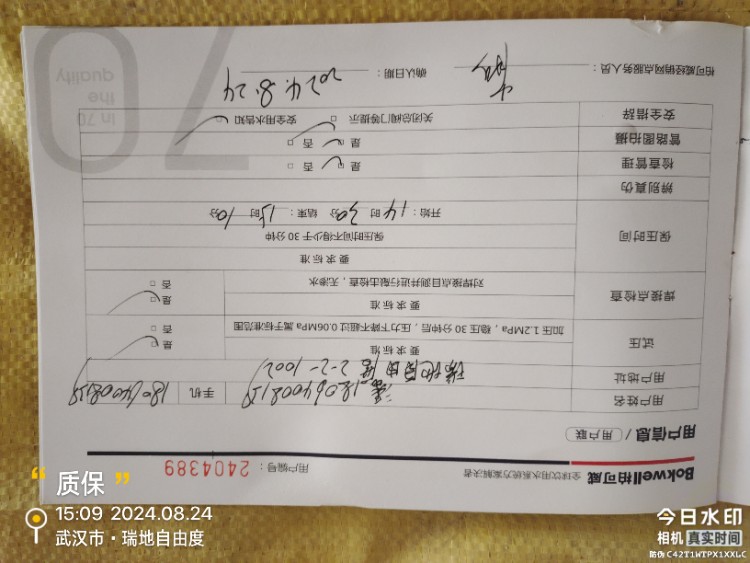 Bokwell柏可威 全球饮用水系统方案解决者 用户编号：2404389
用户信息 / 用户联
用户姓名 手机
用户地址 瑞地自由度 2-2-1002
试压 要求标准 是 否
加压1.2MPa，稳压30分钟后，压力下降不超过0.06MPa属于标准范围
焊接点检查 要求标准 是 否
对焊接点目测并进行敲击检查，无渗水
保压时间 要求标准
保压时间不得少于30分钟
开始：14时30分 结束：15时10分
辨别真伪
检查管理 是 否
管路图拍摄 是 否
安全措辞 关闭总阀门等提示 安全用水告知
柏可威经销网点服务人员： 确认日期：2024.8.24
in 70
the
quality
70
“ 质保 ”
15:09 2024.08.24
武汉市·瑞地自由度
今日水印
相机 真实时间
防伪 C42T1WTPX1XXLC